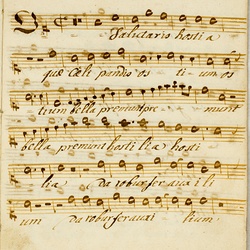 O Salutaris hostia
quæ Cæli pandis os ti um os
tium bella premunt pre munt
bella premunt hosti lia hosti
lia da robur fer auxili
um da robur fer auxi lium.